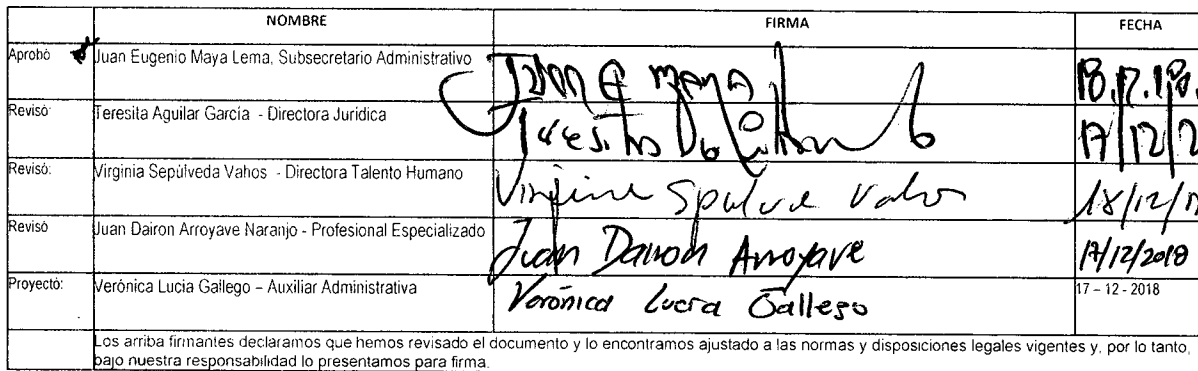 NOMBRE FIRMA FECHA
Aprobó Juan Eugenio Maya Lema, Subsecretario Administrativo Juan E Maya 18.12.18.
Revisó: Teresita Aguilar García - Directora Jurídica Teresita 17/12/2
Revisó: Virginia Sepúlveda Vahos - Directora Talento Humano Virginia Vahos 18/12/1
Revisó Juan Dairon Arroyave Naranjo - Profesional Especializado Juan Dairon Arroyave 17/12/2018
Proyectó: Verónica Lucia Gallego – Auxiliar Administrativa Verónica Lucia Gallego 17 – 12 - 2018
Los arriba firmantes declaramos que hemos revisado el documento y lo encontramos ajustado a las normas y disposiciones legales vigentes y, por lo tanto,
bajo nuestra responsabilidad lo presentamos para firma.